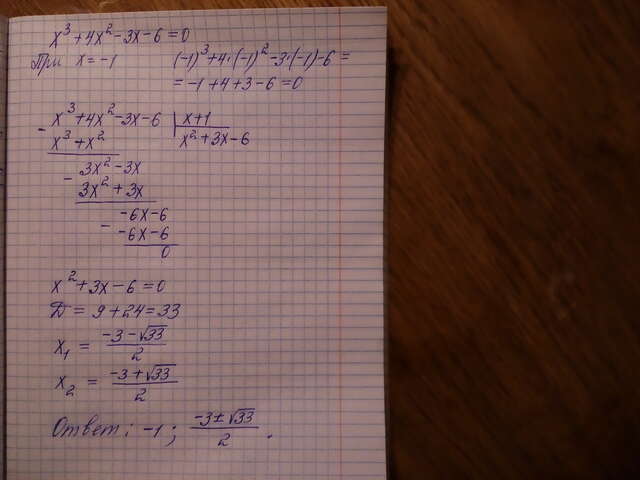 x³+4x²-3x-6=0
При x=-1 (-1)³+4·(-1)²-3·(-1)-6=
=-1+4+3-6=0
- x³+4x²-3x-6 | x+1
x³+x² x²+3x-6
- 3x²-3x
3x²+3x
-6x-6
- -6x-6
0
x²+3x-6=0
D=9+24=33
x₁ = (-3-√33)/2
x₂ = (-3+√33)/2
Ответ: -1; (-3±√33)/2.